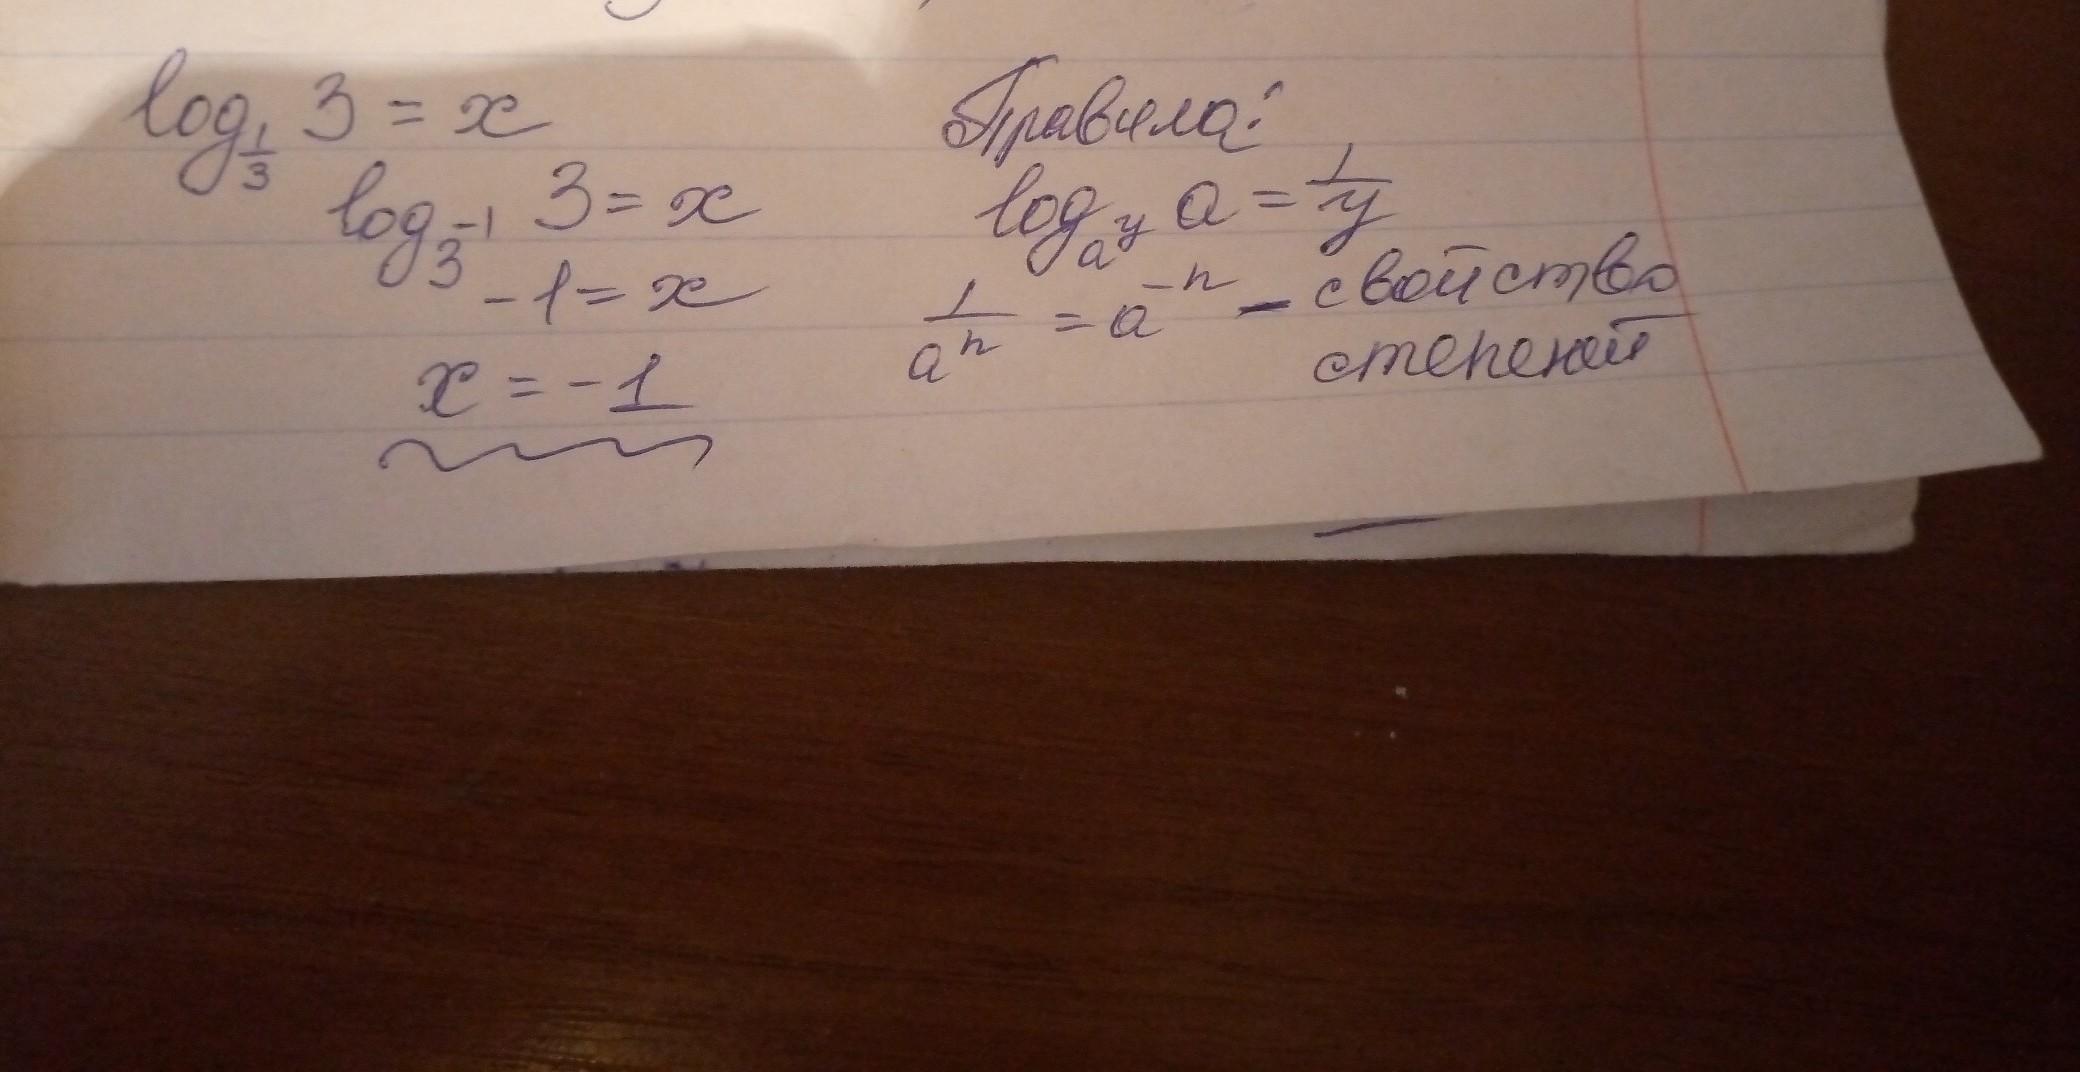 log_{1/3} 3 = x
log_{3^{-1}} 3 = x
-1 = x
x = -1
Правила:
log_{a^y} a = 1/y
1/a^n = a^{-n} - свойство
степеней